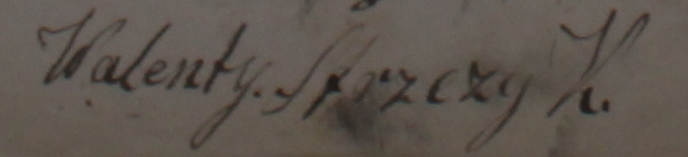 Walenty. Strzczy K.